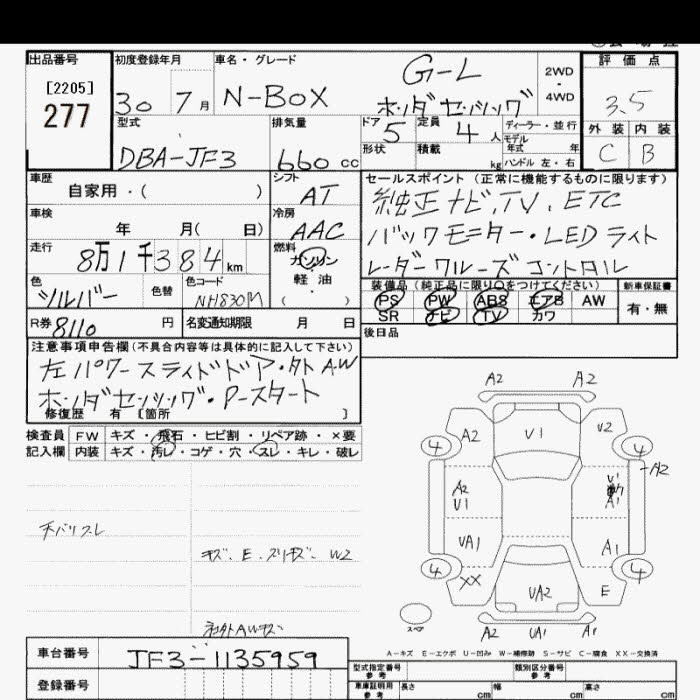 出品番号
[2205]
277
初度登録年月
30 7月
車名・グレード
N-BOX
G-L
ホンダセンシング
2WD
・
4WD
評価点
3.5
外装 内装
C B
型式
DBA-JF3
排気量
660 cc
ドア 5
定員 4 人
ディーラー・並行
モデル
年式 年
形状
積載 kg
ハンドル 左・右
車歴
自家用・( )
シフト
AT
車検
年 月( 日)
冷房
AAC
走行
8万1千384km
燃料
ガソリン
軽油
・
( )
色
シルバー
色替
色カラーコード
NH830M
R券 8110 円
名変通知期限 月 日
セールスポイント (正常に機能するものに限ります)
純正ナビ、TV、ETC
バックモニター・LEDライト
レーダークルーズコントロル
装備品(純正品に限り○をつけてください)
PS PW ABS エアB AW
SR ナビ TV カワ
新車保証書
有・無
後日品
注意事項申告欄(不具合内容等は具体的に記入して下さい)
左パワースライドドア・外A.W
ホンダセンシング・Pースタート
修復歴 有 〔箇所 〕
検査員 FW キズ・飛石・ヒビ割・リペア跡・×要
記入欄 内装 キズ・汚レ・コゲ・穴・スレ・キレ・破レ
チバリスレ
キズ、E、スリキズ W2
社外AWキズ
A2 A2
A2 V1 V2
4 4
A2
A2
V1
V1
A1
VA1 A1
4 4
XX VA2 E
スペア
A2 UA1 A1
A-キズ E-エクボ U-凹み W-補修跡 S-サビ C-腐食 XX-交換済
車台番号 JF3-1135959
登録番号
型式指定番号
参考
類別区分番号
参考
車庫証明用
参考
長さ cm
幅 cm
高さ cm